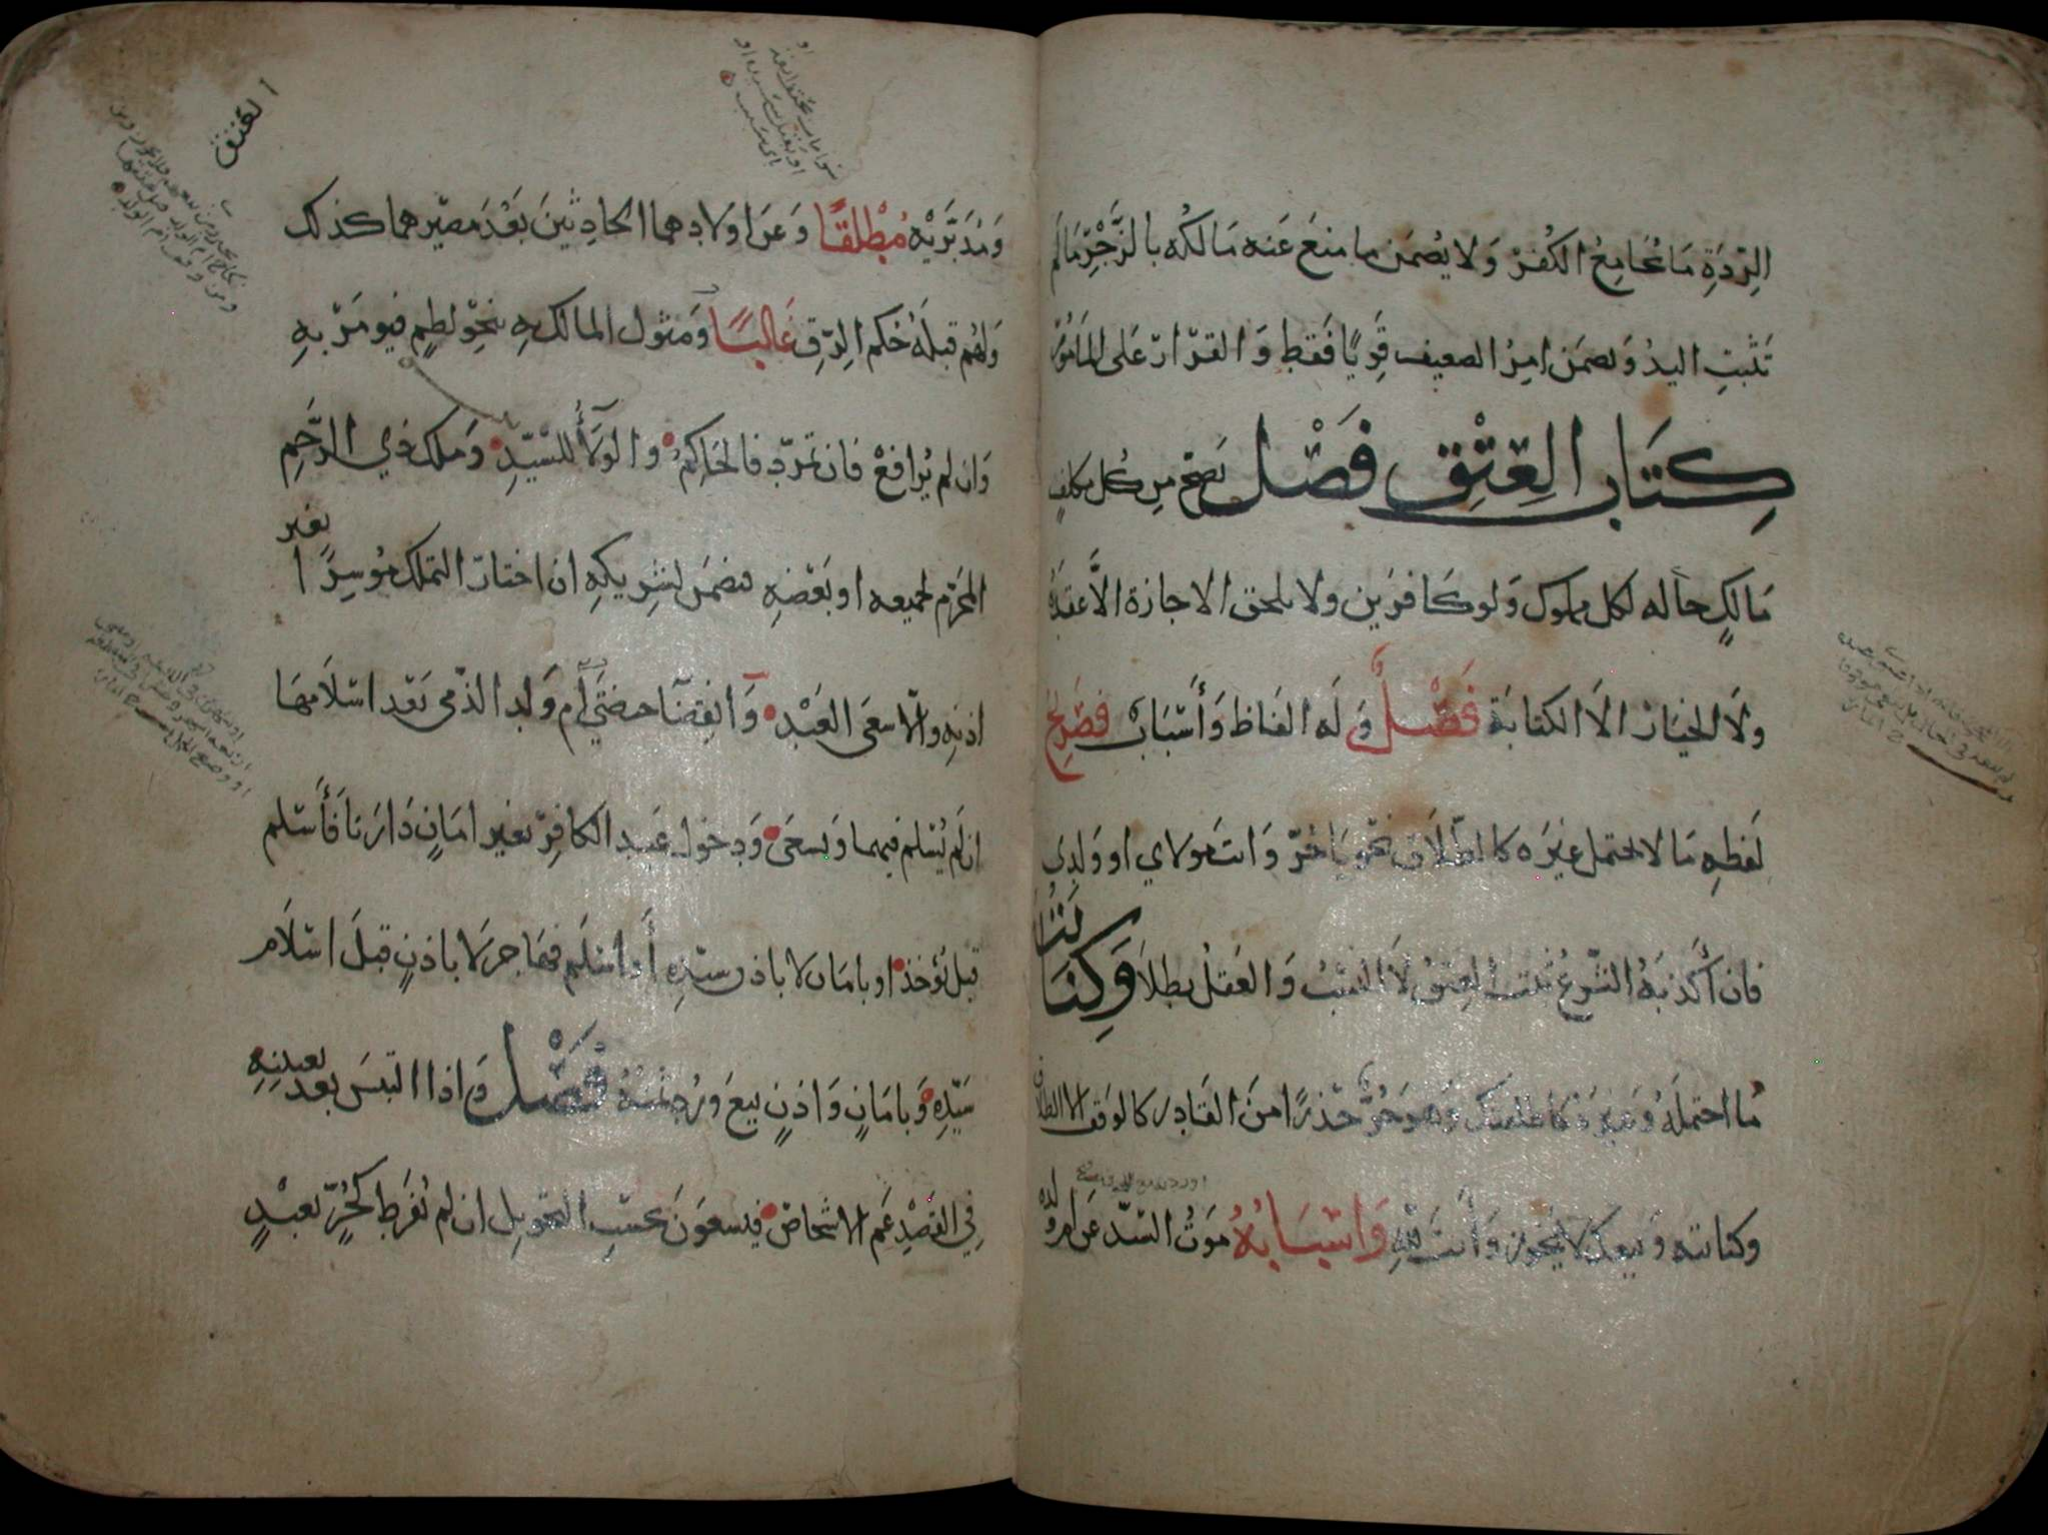 الرِّدَةِ مَا يُجَامِعُ الكُفرَ وَلا يضمَن ما منعَ عَنه مَالكُه بالزَّجْرِ مَالَم
تَثبتِ اليدُ وَيضمَن امِرُ الضعيف قَوِيًّا فَقَط وَالقرَارُ عَلى المَامُورِ
كِتَابُ العِتْقِ فَصْل يَصحّ مِن كُل مكلفٍ
مَالِكٍ حَاله لكل مملوك وَلو كَافرَين ولا تلحق الاجازة الاَّ عَقدَهُ
ولاَ الخيَارُ الاَ الكتابَة فَصْلٌ وَلَه الفاظ وَأَسْبَاب فصَريحُ
لفظِهِ مَا لا يحتمل غيَره كالطّلاَق نحوَ يَا حُرّ وَانتَ مولاي او وَلدِي
فان أكذبَهُ الشّرعُ ثبتَ العِتقُ لاَ النسَبُ وَالعَقلُ بطلاَ وَكِنَايَتُهُ
مُا احتملَهُ وَغيرَهُ كاطلقتك وَهوَ حُرٌّ حَذرًا من القَادِرِ كالوَقف الا الطلاق
وكنايته وَبيعك لا يَجُوز وَأنتَ لِلَّهِ وَاسْبَابُهُ مَوتُ السّيّد عَن ام وَلَدِهِ
العتق
وَمُدَبَّرَيْهِ مُطْلَقًا وَعَن اولادِهما الحادِثينَ بَعْدَ مصيرهما كذلك
وَلهُم قبلَهُ حُكم الرِّقِ غَالِبًا وَمثول المالك بهِ بنحوِ لطمٍ فيومَرُ بهِ
وَان لم يُرافَعْ فان تمرّدَ فالحَاكِمُ والولآءُ للسّيّدِ وَملك ذي الرَّحِمِ
المحَرَّم لجميعه او بَعْضِهِ فيَضمَن لشَريكِهِ ان اختارَ التملك مُوسِرًا بغير
اذنِهِ والاّ سعَى العَبْد وَانقِضَا حيضتَي أم وَلد الذّمي بَعْد اسْلاَمِهَا
ان لَم يُسْلم فيهما وَتسعَى وَدخول عَبد الكافِرِ بغير امَانٍ دَارَنا فَأَسْلم
قبل يُؤخذ او بامَان لا باذن سيّدِهِ أو اسْلَم فهَاجرَ لا باذنٍ قبلَ اسْلاَم
سَيّدِهِ وَبامَانٍ وَاذنٍ بيعَ وَرُدَّ ثمنُهُ فَصْل وَاذا التبسَ بعد تعيينِهِ
فِي القصْدِ عَمّ الاشخاصَ فيَسعَونَ بحسَبِ التحويل ان لم يُفَرّط كحُرٍّ بعبْدٍ